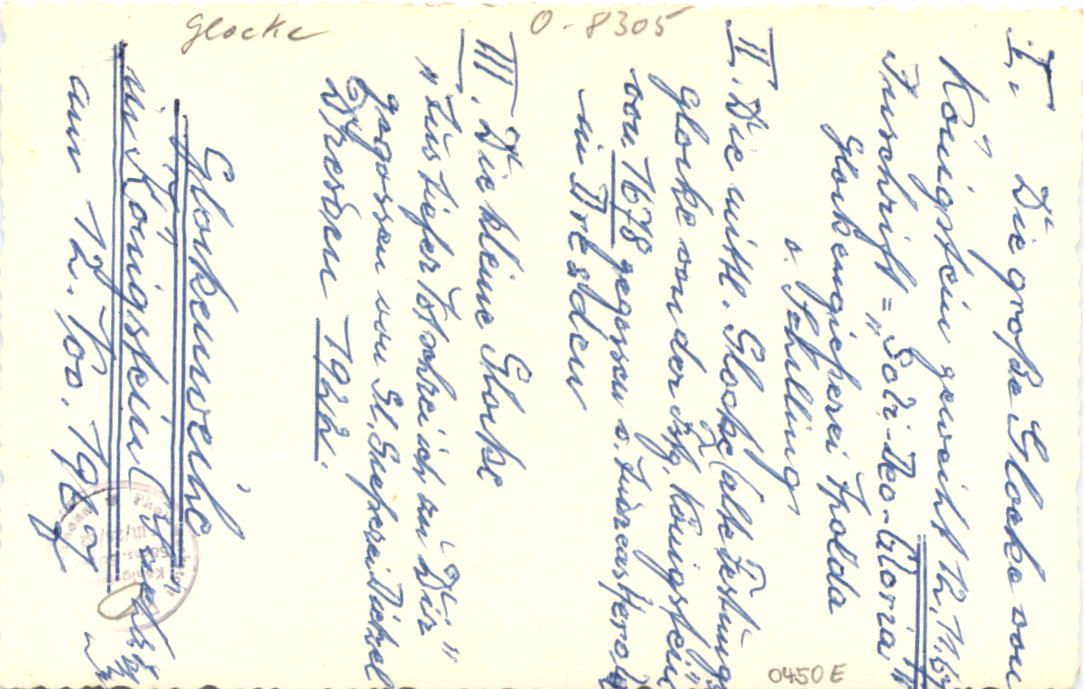 Glocke
O-8305
I. Die große Glocke von
Königstein geweiht 12.11.67
Inschrift = „Soli-Deo-Gloria"
Glockengießerei Apolda
v. Schilling
II. Die mittl. Glocke (alte Festungs
glocke von der Fstg. Königstein
von 1678 gegossen v.
in Dresden
III. Die kleine Glocke
„Aus tiefer Not schrei ich zu Dir"
gegossen von Gl. Gießerei
Dresden 1922.
Glockenweihe
in Königstein
am 12. Nov. 1967
0450 E